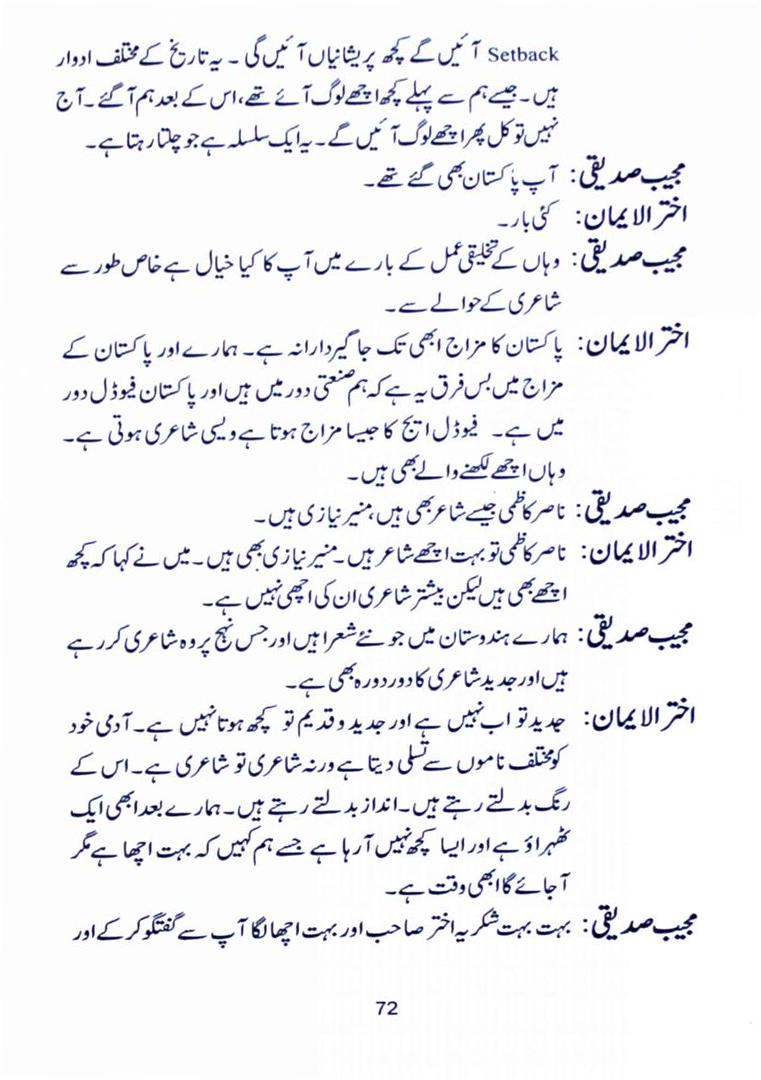 Setback آئیں گے کچھ پریشانیاں آئیں گی ۔ یہ تاریخ کے مختلف ادوار
ہیں۔ جیسے ہم سے پہلے کچھ اچھے لوگ آئے تھے، اس کے بعد ہم آ گئے ۔ آج
نہیں تو کل پھر اچھے لوگ آئیں گے۔ یہ ایک سلسلہ ہے جو چلتا رہتا ہے۔
مجیب صدیقی: آپ پاکستان بھی گئے تھے۔
اختر الایمان: کئی بار۔
مجیب صدیقی: وہاں کے تخلیقی عمل کے بارے میں آپ کا کیا خیال ہے خاص طور سے
شاعری کے حوالے سے۔
اختر الایمان: پاکستان کا مزاج ابھی تک جاگیردارانہ ہے۔ ہمارے اور پاکستان کے
مزاج میں بس فرق یہ ہے کہ ہم صنعتی دور میں ہیں اور پاکستان فیوڈل دور
میں ہے۔ فیوڈل ایج کا جیسا مزاج ہوتا ہے ویسی شاعری ہوتی ہے۔
وہاں اچھے لکھنے والے بھی ہیں۔
مجیب صدیقی: ناصر کاظمی جیسے شاعر بھی ہیں، منیر نیازی ہیں۔
اختر الایمان: ناصر کاظمی تو بہت اچھے شاعر ہیں۔ منیر نیازی بھی ہیں۔ میں نے کہا کہ کچھ
اچھے بھی ہیں لیکن بیشتر شاعری ان کی اچھی نہیں ہے۔
مجیب صدیقی: ہمارے ہندوستان میں جو نئے شعرا ہیں اور جس نہج پر وہ شاعری کر رہے
ہیں اور جدید شاعری کا دور دورہ بھی ہے۔
اختر الایمان: جدید تو اب نہیں ہے اور جدید و قدیم تو کچھ ہوتا نہیں ہے۔ آدمی خود
کو مختلف ناموں سے تسلی دیتا ہے ورنہ شاعری تو شاعری ہے۔ اس کے
رنگ بدلتے رہتے ہیں۔ انداز بدلتے رہتے ہیں۔ ہمارے بعد ابھی ایک
ٹھہراؤ ہے اور ایسا کچھ نہیں آ رہا ہے جسے ہم کہیں کہ بہت اچھا ہے مگر
آ جائے گا ابھی وقت ہے۔
مجیب صدیقی: بہت بہت شکریہ اختر صاحب اور بہت اچھا لگا آپ سے گفتگو کر کے اور
72